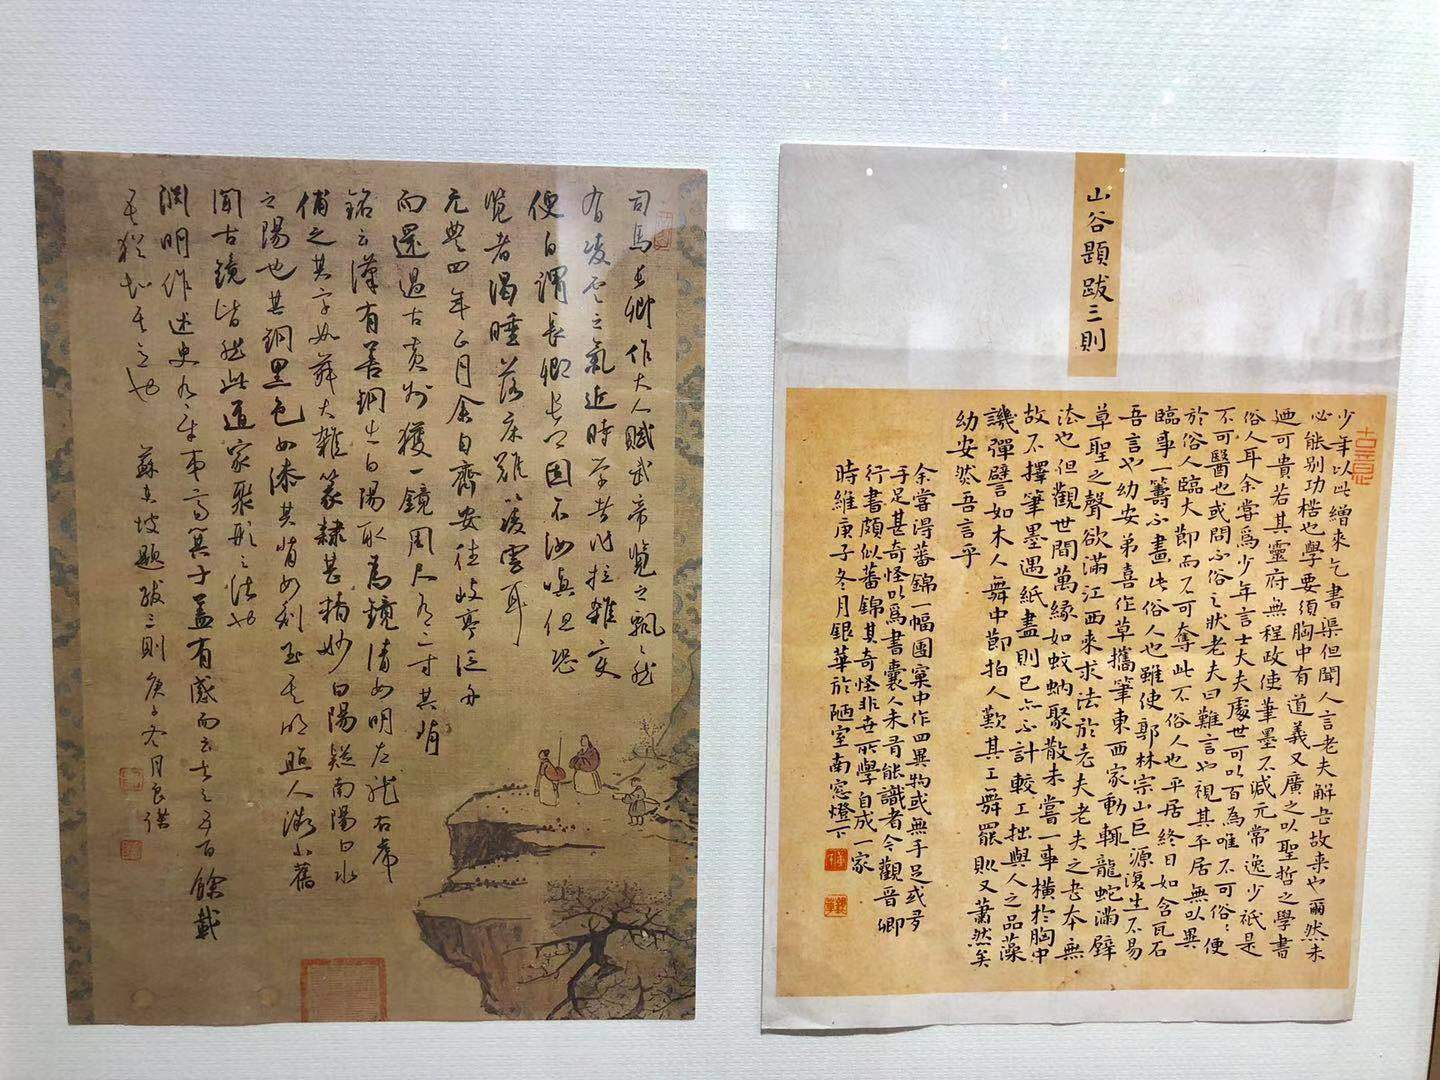 山谷題跋三則
少年以此繒來乞書渠但聞人言老夫解書故來也爾然未
必能別功楛也學要須胸中有道義又廣之以聖哲之學書
迺可貴若其靈府無程政使筆墨不減元常逸少祇是
俗人耳余嘗爲少年言士大夫處世可以百為唯不可俗〻便
不可醫也或問不俗之狀老夫曰難言也視其平居無以異
於俗人臨大節而不可奪此不俗人也平居終日如含瓦石
臨事一籌不畫此俗人也雖使郭林宗山巨源復生不易
吾言也幼安弟喜作草攜筆東西家動輒龍蛇滿壁
草聖之聲欲滿江西來求法於老夫老夫之書本無
法也但觀世間萬緣如蚊蚋聚散未嘗一事橫於胸中
故不擇筆墨遇紙盡則已亦不計較工拙與人之品藻
譏彈譬如木人舞中節拍人歎其工舞罷則又蕭然矣
幼安然吾言乎
余嘗得蕃錦一幅團窠中作四異物或無手足或多
手足甚奇怪以爲書囊人未有能識者今觀晉卿
行書頗似蕃錦其奇怪非世所學自成一家
時維庚子冬月銀華於陋室南窓燈下
司馬長卿作大人賦武帝覽之飄〻然
有凌雲之氣近時學者作拉雜變
便自謂長卿長卿固不汝嗔但恐
覽者渴睡落床難以凌雲耳
元豐四年正月余自齊安往岐亭泛舟
而還過古黃州獲一鏡周尺有二寸其背
銘云漢有善銅出白陽取為鏡清如明左龍右虎
俌之其字如菽大雜篆隸甚精妙白陽疑南陽白水
之陽也其銅黑色如漆其背如刻玉其明照人微小舊
聞古鏡皆然此道家聚形之法也
淵明作述史九章夷齊箕子蓋有感而云去之五百餘載
吾猶知其意也 蘇東坡題跋三則 庚子冬月